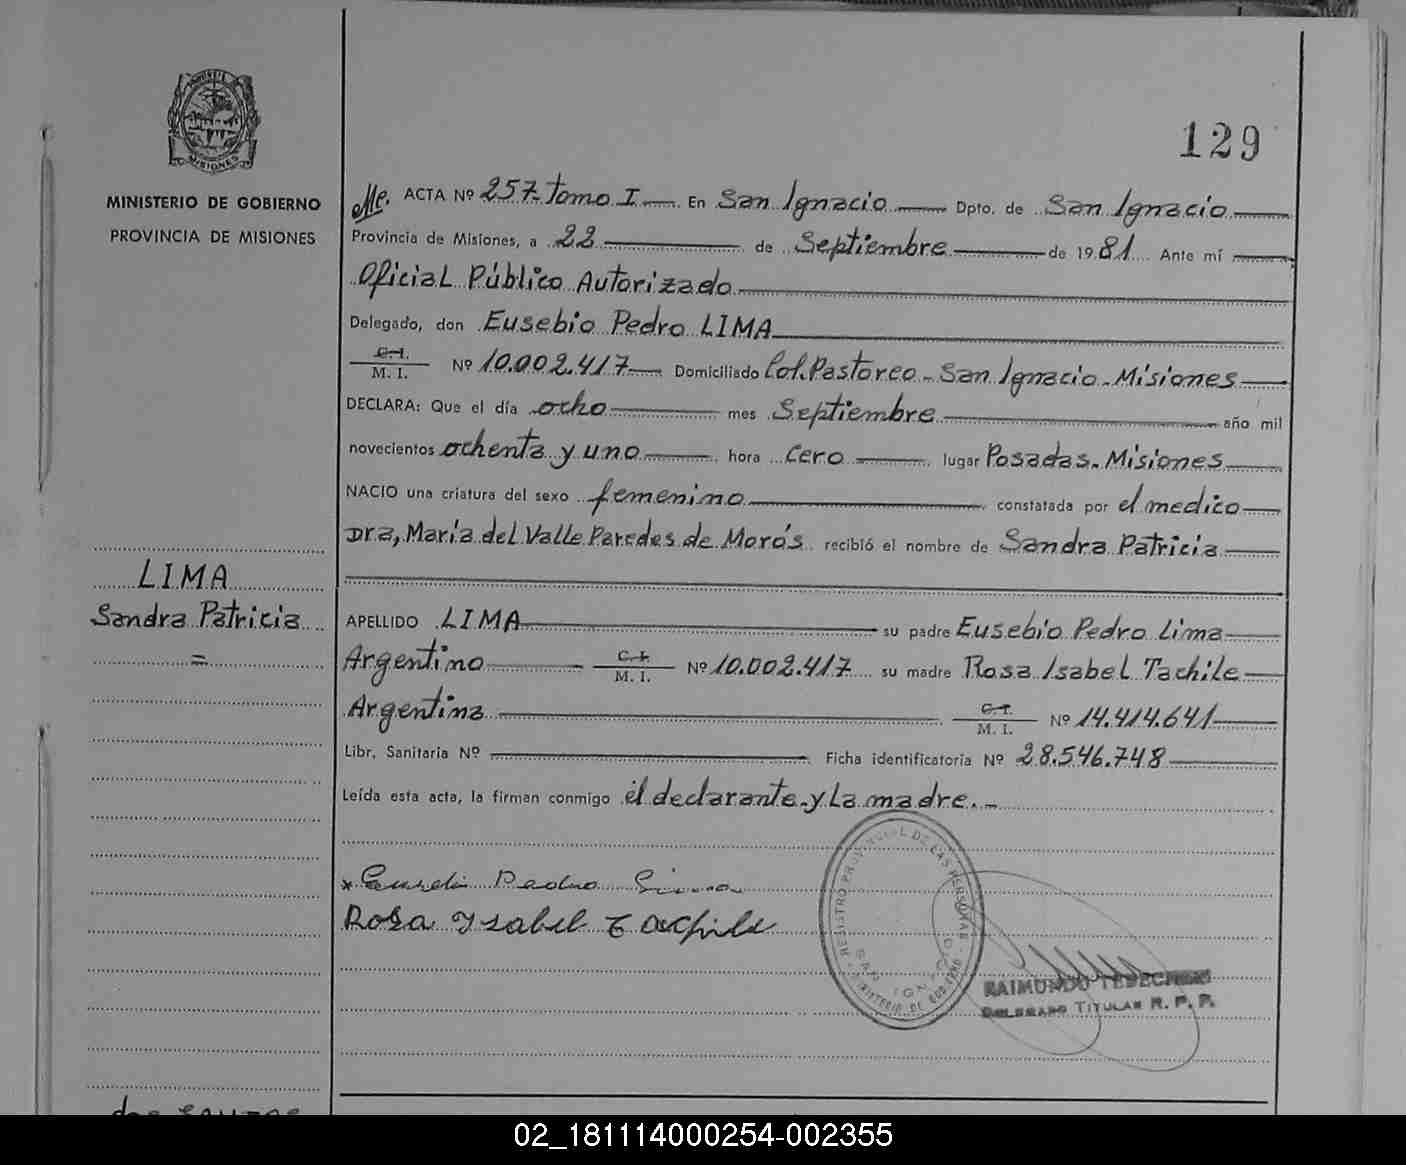 129
MINISTERIO DE GOBIERNO
PROVINCIA DE MISIONES
Me. ACTA Nº 257- Tomo I En San Ignacio Dpto. de San Ignacio
Provincia de Misiones, a 22 de Septiembre de 1981 Ante mí
Oficial Público Autorizado
Delegado, don Eusebio Pedro LIMA
C. I.
M. I. Nº 10.002.417 Domiciliado Col. Pastoreo - San Ignacio - Misiones
DECLARA: Que el día ocho mes Septiembre año mil
novecientos ochenta y uno hora cero lugar Posadas - Misiones
NACIO una criatura del sexo femenino constatada por el medico
Dra, María del Valle Paredes de Morás recibió el nombre de Sandra Patricia
LIMA
Sandra Patricia
=
APELLIDO LIMA su padre Eusebio Pedro Lima
Argentino C. I. M. I. Nº 10.002.417 su madre Rosa Isabel Tachile
Argentina C. I. M. I. Nº 14.414.641
Libr. Sanitaria Nº Ficha identificatoria Nº 28.546.748
Leída esta acta, la firman conmigo el declarante y La madre.-
Pedro Lima
Rosa Ysabel Tachile
REGISTRO PROVINCIAL DE LAS PERSONAS
SAN IGNACIO
MINISTERIO DE GOBIERNO
RAIMUNDO TEDESCHINI
DELEGADO TITULAR R. P. P.
02_181114000254-002355